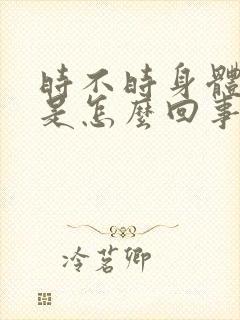 時不時身體
是怎麼回事
冷茗卿